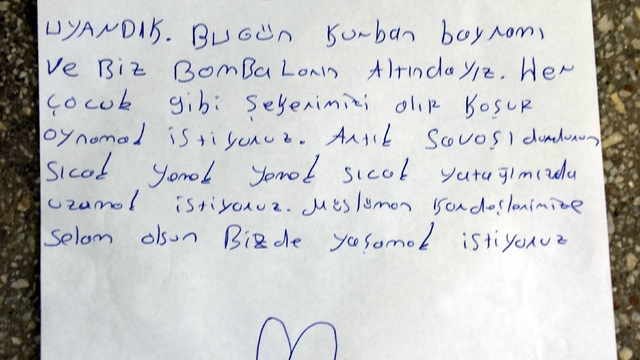 UYANDIK. BUGÜn Kurban bayramı
ve Biz BOMBALARIN Altındayız. Her
çocuk gibi Şekerimizi alıp Koşup
oynamak istiyoruz. Artık Savaşı durdurun
Sıcak yemek yemek sıcak yatağımızda
uzamak istiyoruz. Müslüman Kardeşlerimize
Selam olsun Bizde yaşamak istiyoruz